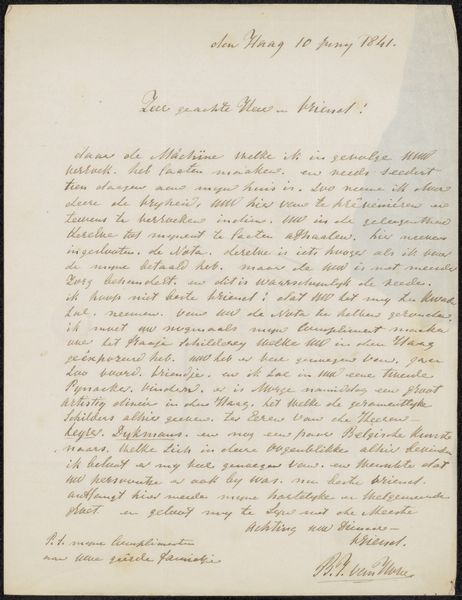 den Haag 10 Juny 1841.
Zeer geachte Heer en Vriend!
daar de Machine welke ik in gevolge UW
verzoek. het laaten maaken. en reeds seedert
tien daagen aan myn huis is. Zoo neeme ik door
deeze de vryheid, UW hier van te
teevens te verzoeken indien. UW in de geleegentheid
dezelve tot mynent te laaten afhaalen. hier neevens
ingeslooten. de Nota. dezelve is iets hooger als ik voor
de myne betaald heb. maar de UW is met meerder
Zorg behandelt. en dit is waarschynlyk de reede.
ik hoop niet beste Vriend! dat UW het my ten kwaade
Zal, neemen. van UW de Nota te hebben gezonden.
ik moet UW nogmaals myne Compliment maaken
over het fraaje Schildery welke UW in den Haag
geëxpozeerd heb. UW heb er veel genoegen van. gaar
Zoo voord. Vriendje. en ik Zal in UW een tweede
Pynacker. vinden. er is Morge namiddag een groot
artistig diner in den Haag. het welke de gezamentlyke
Schilders alhier geeven. ter Eeren van de Heeren
Leys. Dykmans. en nog een paar Belgische Kunste
naars. welke Zich in deeze oogenblikke alhier bevinden
ik beloof er my veel genoegen van. en wenschte dat
UW persoontje er ook by was. nu beste vriend.
ontfangt hier meede myne hartelyke en welgemeende
groet en geloof my te Zyn met de Meeste
Achting uw Dienaar
Vriend.
P.S. myne Complimenten
aan UWE geëerde familje
B.J. van Hove